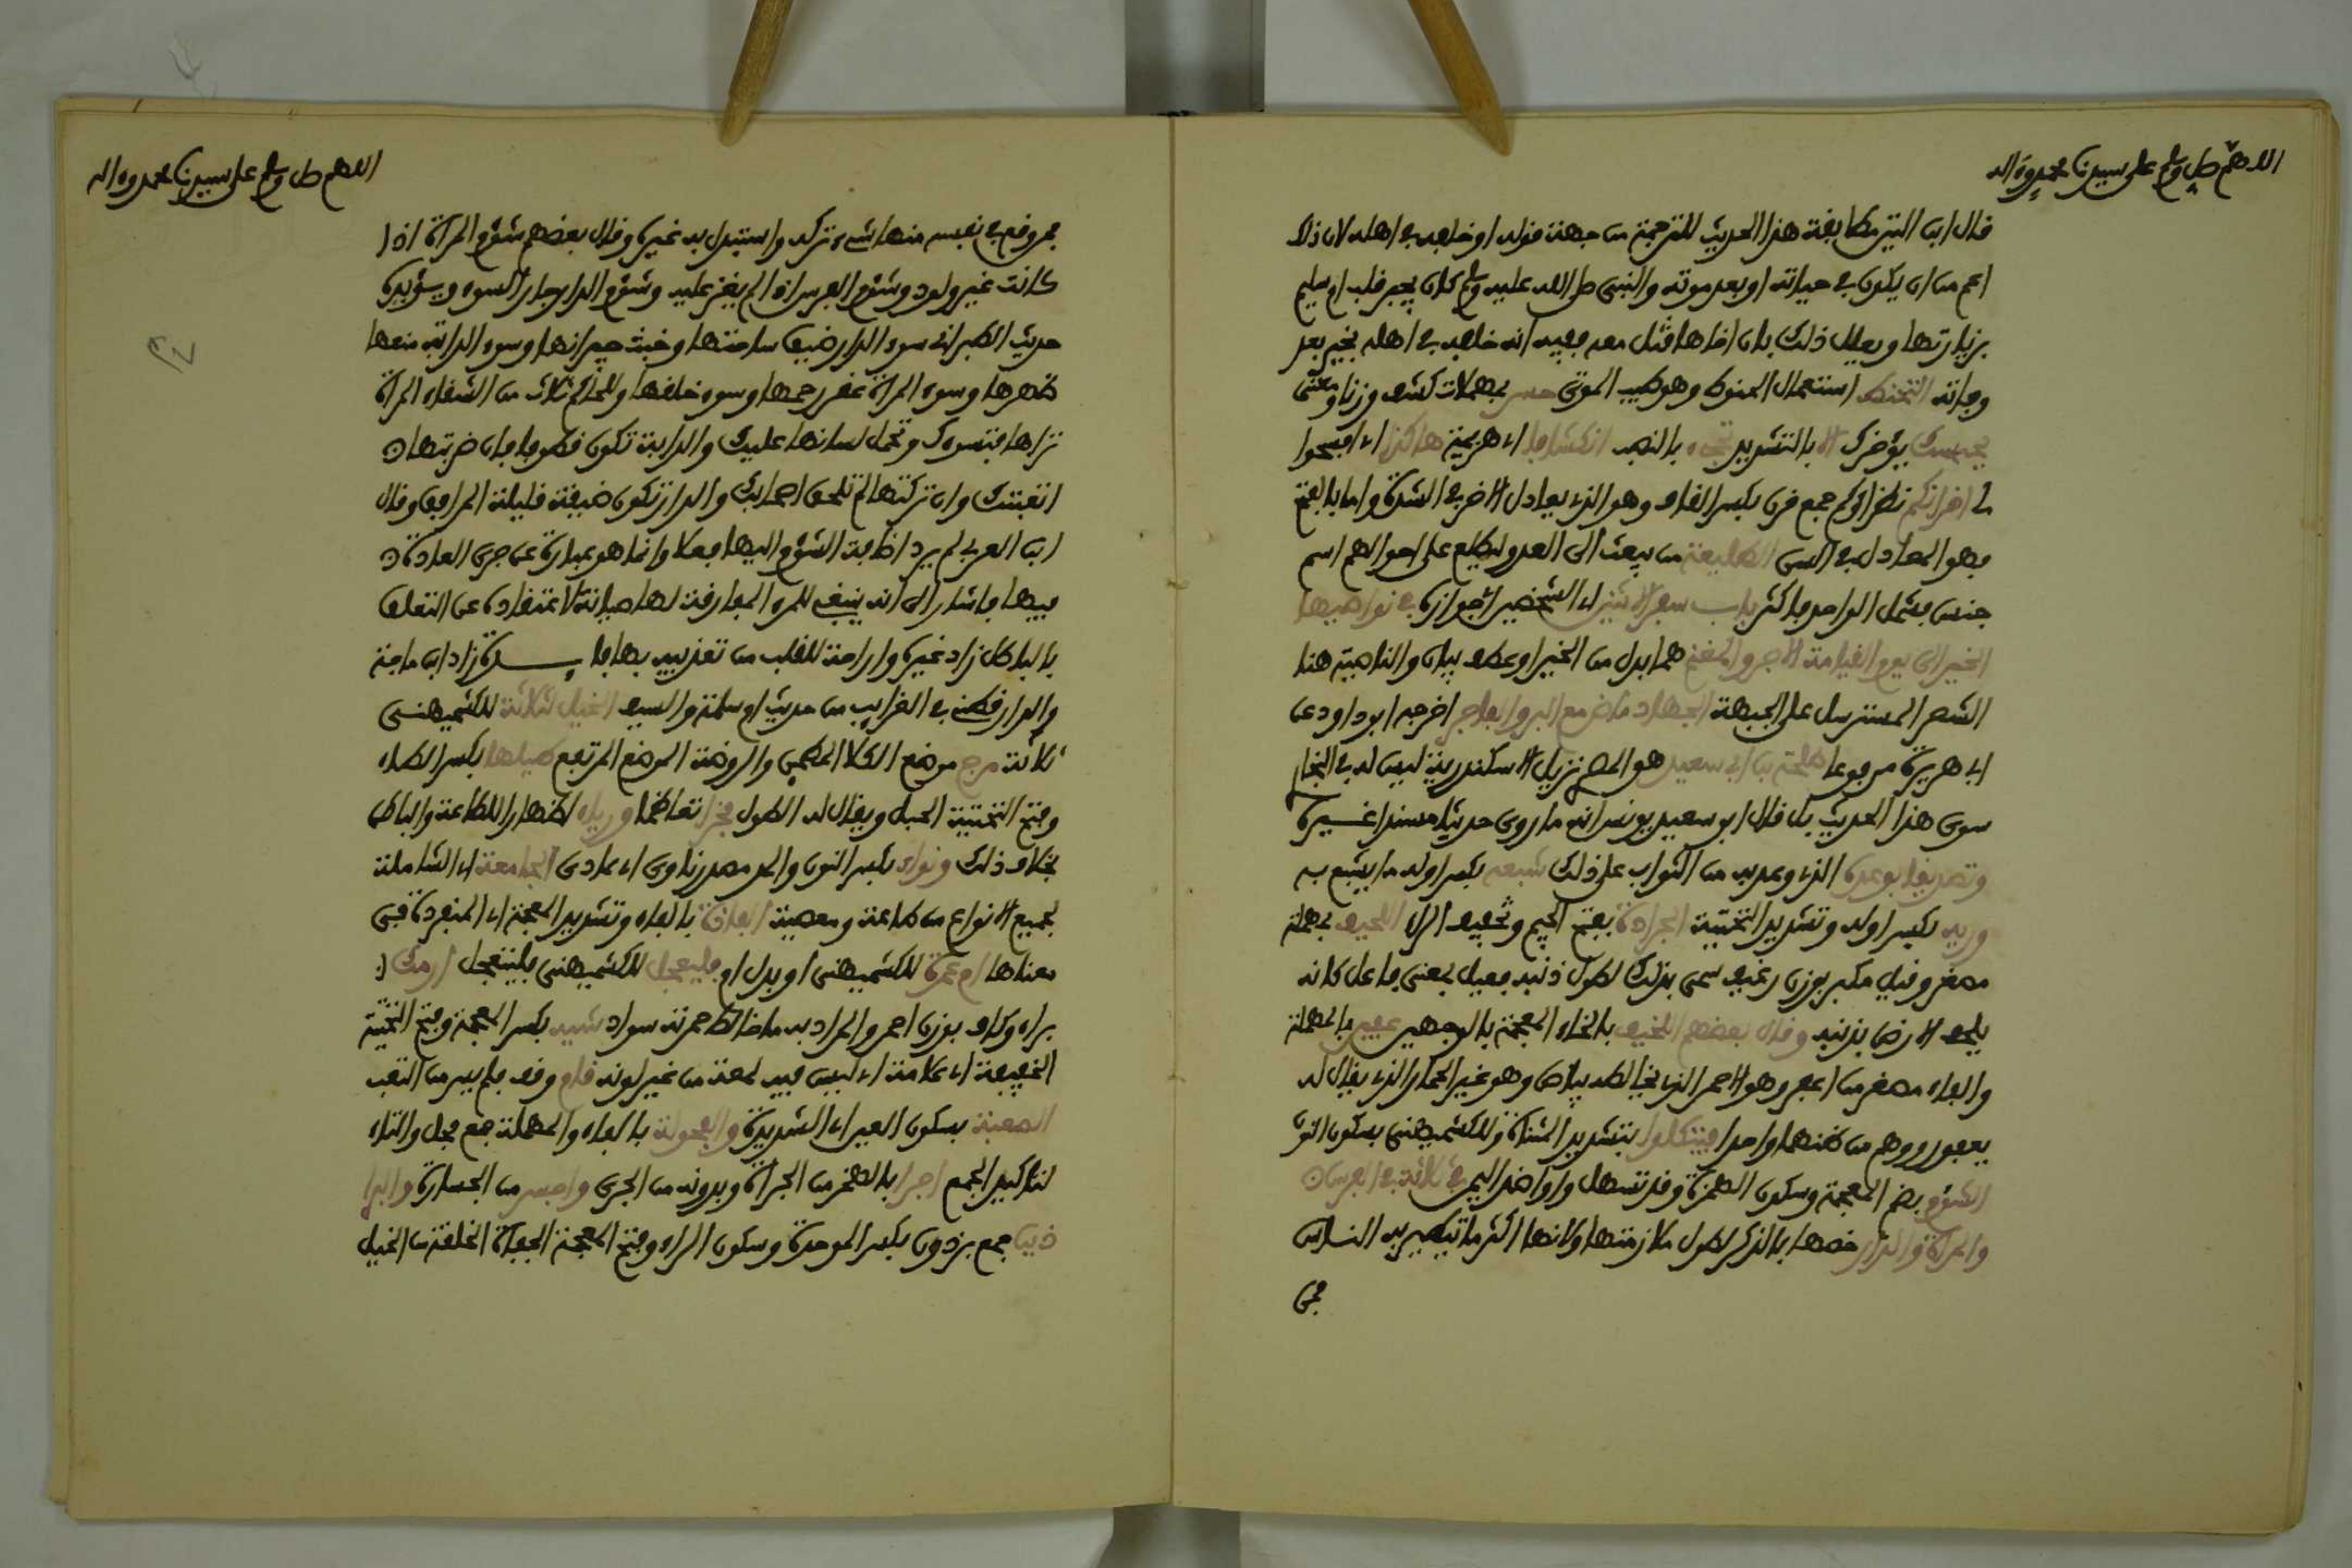 اللهم صل وسلم على سيدنا محمد وءاله
قال ابن التين مطابقة هذا الحديث للترجمة من جهة قوله او خلفه في اهله لان ذلك
اعم من ان يكون في حياته او بعد موته والنبي صلى الله عليه وسلم كان يجبر قلب ام سليم
بزيارتها ويعلل ذلك بان اخاها قتل معه ففيه انه خلفه في اهله بخير بعد
وفاته التحنط استعمال الحنوط وهو طيب الموتى حسر بمهملات كشف وزنا ومعنى
يحبسك يؤخرك الا بالتشديد تجىء بالنصب انكشافا اي هزيمة هاكذا اي افسحوا
لي اقرانكم نظراؤكم جمع قرن بكسر القاف وهو الذي يعادل الاخر في الشدة واما بالفتح
فهو المعادل في السن الطليعة من يبعث الى العدو ليطلع على احوالهم اسم
جنس يشمل الواحد فاكثر باب سفر الاثنين اي الشخصين اي جوازه في نواصيها
الخير الى يوم القيامة الاجر والمغنم هما بدل من الخير او عطف بيان والناصية هنا
الشعر المسترسل على الجبهة الجهاد ماض مع البر والفاجر اخرجه ابو داود عن
ابي هريرة مرفوعا طلحة بن ابي سعيد هو المصري نزيل الاسكندرية ليس له في البخاري
سوى هذا الحديث بل قال ابو سعيد يونس انه ما روى حديثا مسندا غيره
وتصديقا بوعده الذي وعد به من الثواب على ذلك شبعه بكسر اوله ما يشبع به
وريه بكسر اوله وتشديد التحتية الجرادة بفتح الجيم وتخفيف الراء اللحيف بمهملة
مصغر وقيل مكبر بوزن رغيف سمي بذلك لطول ذنبه فعيل بمعنى فاعل كانه
يلحف الارض بذنبه وقال بعضهم اللخيف بالخاء المعجمة بالوجهين عفير بالمهملة
والفاء مصغر من اعفر وهو الاحمر الذي يخالطه بياض وهو غير الحمار الذي يقال له
يعفور ووهم من ظنهما واحدا فيتكلوا بتشديد المثناة وللكشميهني بسكون النون
الشؤم بضم المعجمة وسكون الهمزة وقد تسهل واوا ضد اليمن في ثلاثة في الفرس
والمرأة والدار خصها بالذكر لطول ملازمتها ولانها اكثر ما يتطير به الناس
فمن
اللهم صل وسلم على سيدنا محمد وءاله
فمن وقع في نفسه منها شيء تركه واستبدل به غيره وقال بعضهم شؤم المرأة اذا
كانت غير ولود وشؤم الفرس اذا لم يغز عليه وشؤم الدار جار السوء ويؤيده
حديث الطبراني سوء الدار ضيق ساحتها وخبث جيرانها وسوء الدابة منعها
ظهرها وسوء المرأة عقر رحمها وسوء خلقها وللحاكم ثلاث من الشقاء المرأة
تراها فتسوءك وتحمل لسانها عليك والدابة تكون قطوفا فان ضربتها
اتعبتك وان تركتها لم تلحق اصحابك والدار تكون ضيقة قليلة المرافق وقال
ابن العربي لم يرد اضافة الشؤم اليها فعلا وانما هو عبارة عن جري العادة
فيها فاشار الى انه ينبغي للمرء المفارقة لها صيانة لاعتقاده عن التعلق
بالباطل زاد غيره واراحة للقلب من تعذيبه بها فايدة زاد ابن ماجة
والدارقطني في الغرايب من حديث ام سلمة والسيف الخيل ثلاثة للكشميهني
ثلاثة مرج موضع الكلا المطمين والروضة الموضع المرتفع طيلها بكسر الطاء
وفتح التحتية الحبل ويقال له الطول فخرا تعاظما ورياء اظهارا للطاعة والباطن
بخلاف ذلك ونواء بكسر النون والمد مصدر ناوى اي عادى الجامعة اي الشاملة
لجميع الانواع من طاعة ومعصية الفاذة بالفاء وتشديد المعجمة اي المنفردة في
معناها ام عمرة للكشميهني او بدل ام فليعجل للكشميهني فليتعجل ارمك
براء وكاف بوزن احمر والمراد به ما خالط حمرته سواد شية بكسر المعجمة وفتح التحتية
الخفيفة اي علامة اي ليس فيه لمعة من غير لونه قام وقف فلم يسر من التعب
الصعبة بسكون العين اي الشديدة والفحولة بالفاء والمهملة جمع فحل والتاء
لتاكيد الجمع اجرا بالهمز من الجراة وبدونه من الجري واجسر من الجسارة والبرا
ذين جمع برذون بكسر الموحدة وسكون الراء وفتح المعجمة الجفاة الخلقة من الخيل